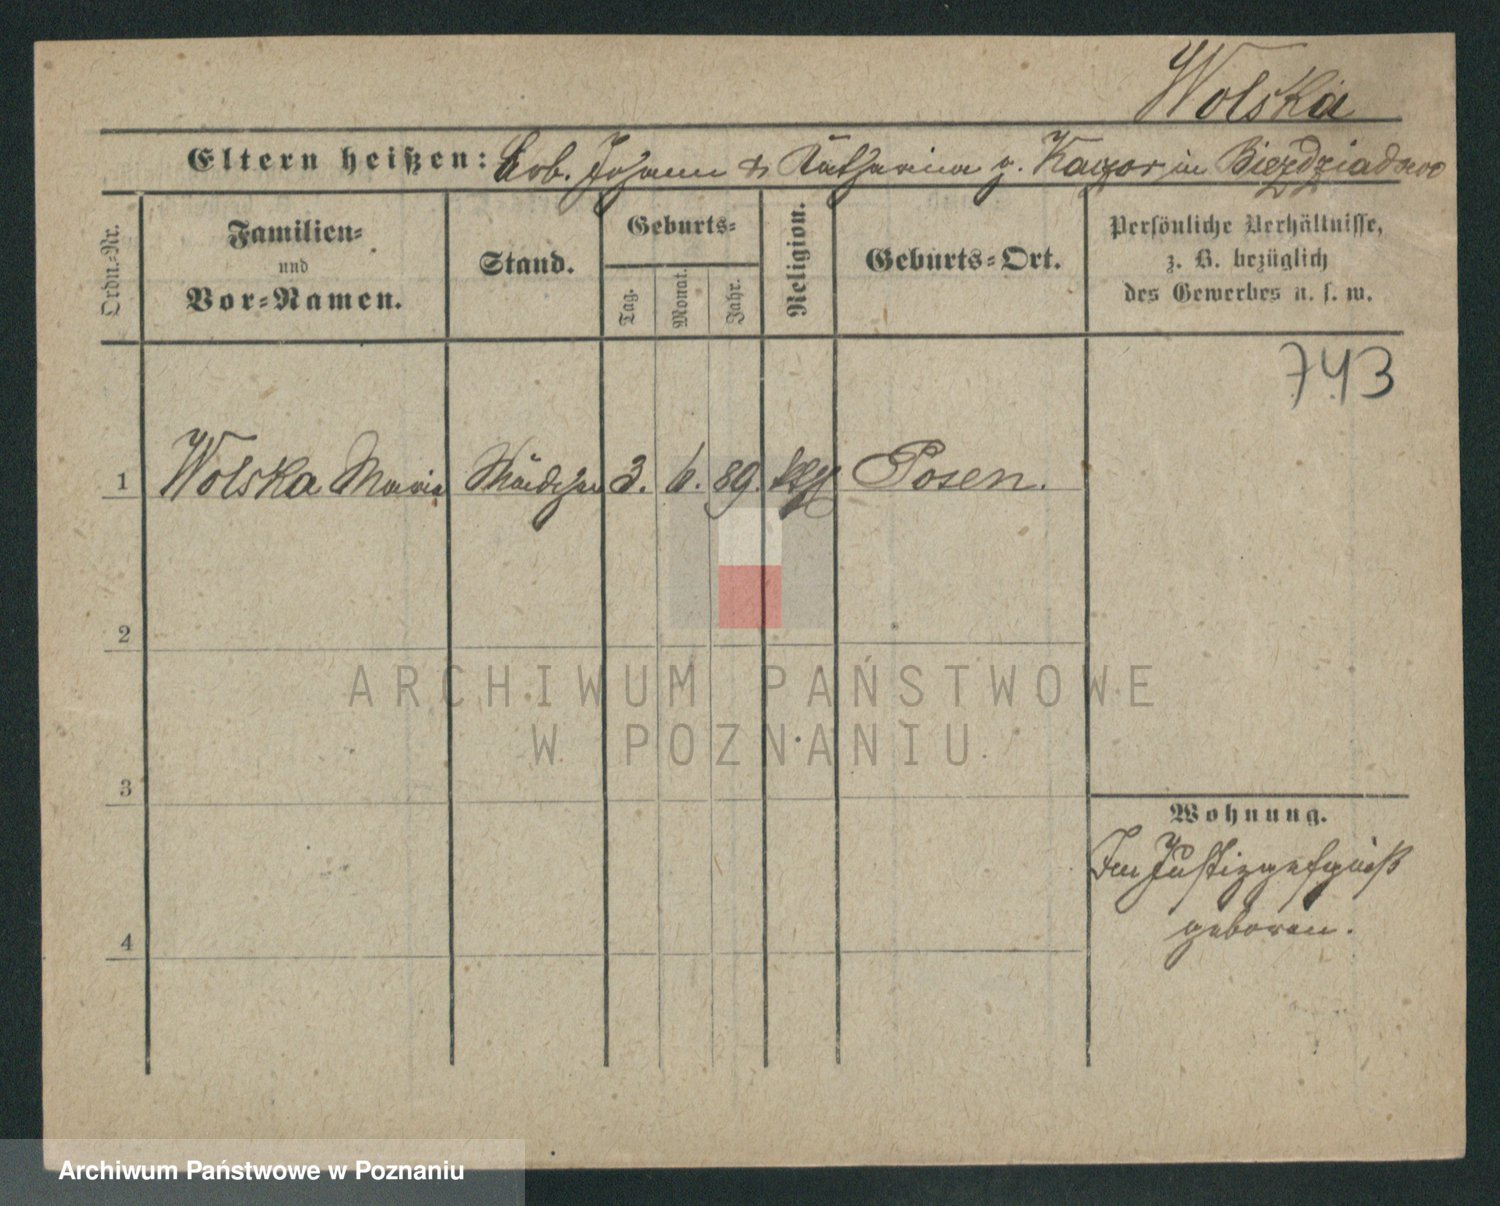 Wolska
Eltern heißen: Arb. Johann & Katharina g. Kaczor in Biezdziadowo
Ordn.-Nr.
Familien-
und
Vor-Namen.
Stand.
Geburts-
Tag.
Monat.
Jahr.
Religion.
Geburts-Ort.
Persönliche Verhältnisse,
z. B. bezüglich
des Gewerbes u. s. w.
743
1 Wolska Maria Mädchen 3. 6. 89. Posen.
2
3
4
Wohnung.
Im Justizgefgniß
geboren.
ARCHIWUM PAŃSTWOWE
W POZNANIU
Archiwum Państwowe w Poznaniu